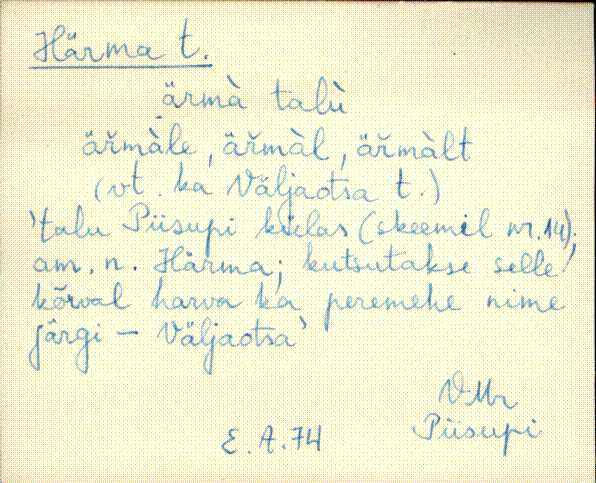 Härma t.
ärmà talù
är̆màle, är̆màl, är̆màlt
(vt. ka Väljaotsa t.)
'talu Piisupi külas (skeemil nr. 14);
am. n. Härma; kutsutakse selle
kõrval harva ka peremehe nime
järgi – Väljaotsa'
VMr
Piisupi
E. A. 74